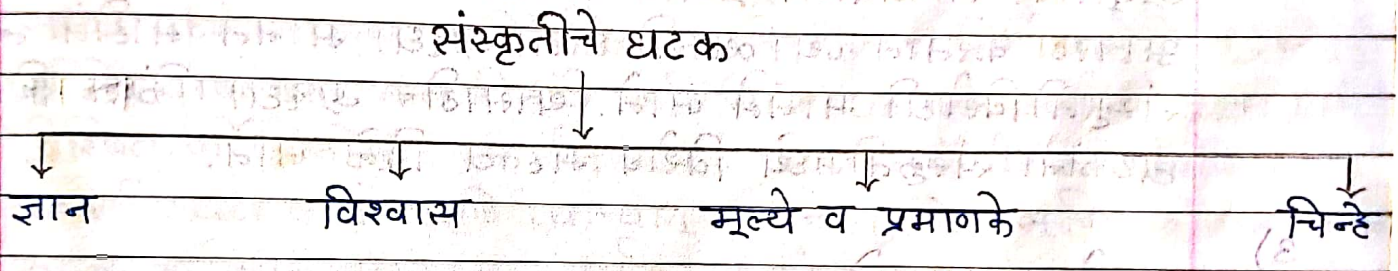 संस्कृतीचे घटक
ज्ञान विश्वास मूल्ये व प्रमाणके चिन्हे